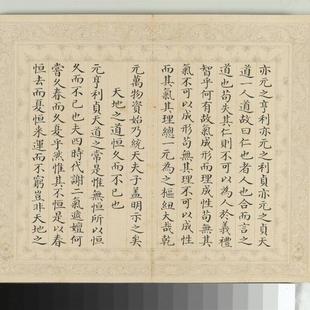 亦元之亨利亦元之利貞亦元之貞天
道一人道故曰仁也者人也合而言之
道也苟失其仁則不可以為人於義禮
智乎何有故氣成形而理成性苟無其
不可以成形苟無其理不可以成性
而其氣其理總一元為之樞紐大哉乾
元萬物資始乃統天夫子蓋明示之矣
天地之道恒久而不已也
元亨利貞天道之常是惟無恒所以恒
久而不已也夫四時代謝二氣遞嬗何
嘗久春而久夏乎然惟其不恒是以春
恒去而夏恒来運而不窮豈非天地之